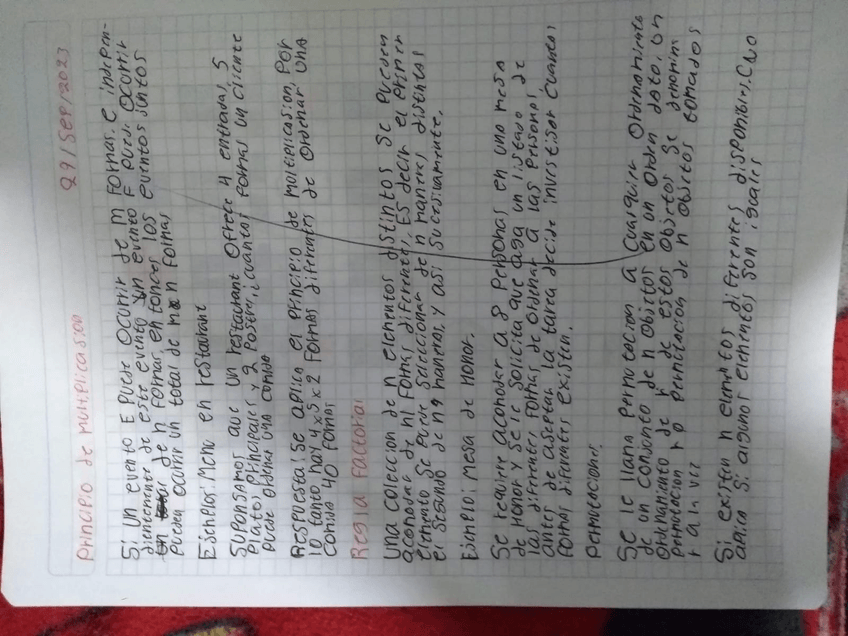 27/SEP/2023
Principio de multiplicasion
Si un evento E puede ocurrir de m formas, e indepen-
dientemente de este evento un evento F puede ocurrir
de n formas, entonces los eventos juntos
pueden ocurrir un total de m n formas
Ejemplos: Menu en restaurant
Suponsamos que un restaurant ofrece 4 entradas, 5
platos principales y 2 postres, ¿cuantas formas un cliente
puede ordenar una comida
Respuesta: se aplica el principio de multiplicasion, por
lo tanto hay 4x5x2 formas diferentes de ordenar una
comida 40 formas
Regla factorial
Una coleccion de n elementos distintos se pueden
acomodar de n! formas diferentes, Es decir el primer
elemento se puede seleccionar de n maneras distintas
el segundo de n-1 maneras, y así sucesivamente.
Ejemplo: mesa de Honor.
Se requiere acomodar a 8 personas en una mesa
de honor y se le solicita que aga un listado de
las diferentes formas de ordenar a las personas de
antes de aseptar la tarea decide investigar cuantas
formas diferentes existen.
permutaciones
Se le llama permutacion a cualquier ordenamiento
de un conjunto de n objetos en un orden dado. Un
ordenamiento de r de estos objetos se denomina
permutacion r o permutacion de n objetos tomados
r a la vez
Si existen n elementos diferentes disponibles. (No
aplica si algunos elementos son iguales